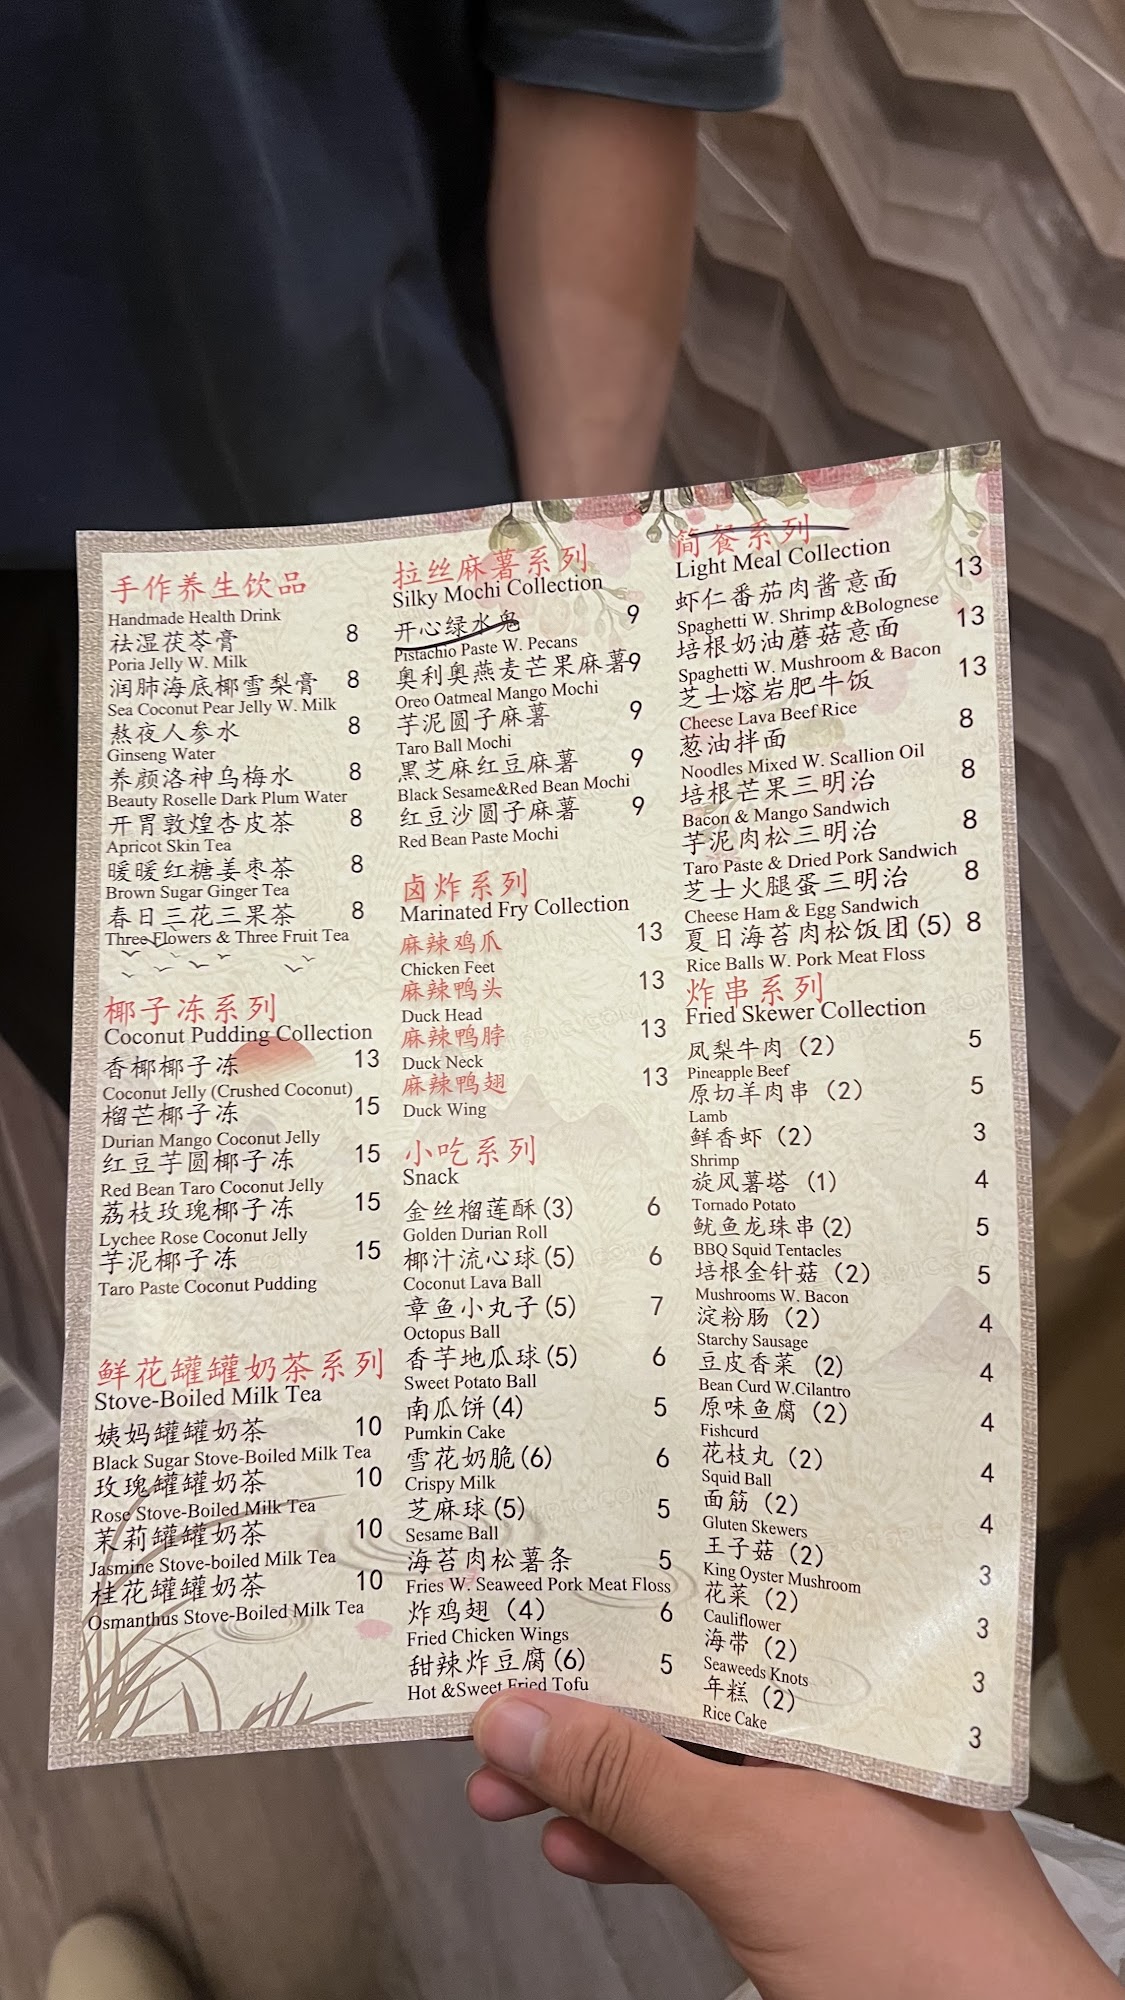 手作养生饮品
Handmade Health Drink
祛湿茯苓膏 8
Poria Jelly W. Milk
润肺海底椰雪梨膏 8
Sea Coconut Pear Jelly W. Milk
熬夜人参水 8
Ginseng Water
养颜洛神乌梅水 8
Beauty Roselle Dark Plum Water
开胃敦煌杏皮茶 8
Apricot Skin Tea
暖暖红糖姜枣茶 8
Brown Sugar Ginger Tea
春日三花三果茶 8
Three Flowers & Three Fruit Tea
椰子冻系列
Coconut Pudding Collection
香椰椰子冻 13
Coconut Jelly (Crushed Coconut)
榴芒椰子冻 15
Durian Mango Coconut Jelly
红豆芋圆椰子冻 15
Red Bean Taro Coconut Jelly
荔枝玫瑰椰子冻 15
Lychee Rose Coconut Jelly
芋泥椰子冻 15
Taro Paste Coconut Pudding
鲜花罐罐奶茶系列
Stove-Boiled Milk Tea
姨妈罐罐奶茶 10
Black Sugar Stove-Boiled Milk Tea
玫瑰罐罐奶茶 10
Rose Stove-Boiled Milk Tea
茉莉罐罐奶茶 10
Jasmine Stove-boiled Milk Tea
桂花罐罐奶茶 10
Osmanthus Stove-Boiled Milk Tea
拉丝麻薯系列
Silky Mochi Collection
开心绿水鬼 9
Pistachio Paste W. Pecans
奥利奥燕麦芒果麻薯 9
Oreo Oatmeal Mango Mochi
芋泥圆子麻薯 9
Taro Ball Mochi
黑芝麻红豆麻薯 9
Black Sesame&Red Bean Mochi
红豆沙圆子麻薯 9
Red Bean Paste Mochi
卤炸系列
Marinated Fry Collection
麻辣鸡爪 13
Chicken Feet
麻辣鸭头 13
Duck Head
麻辣鸭脖 13
Duck Neck
麻辣鸭翅 13
Duck Wing
小吃系列
Snack
金丝榴莲酥(3) 6
Golden Durian Roll
椰汁流心球(5) 6
Coconut Lava Ball
章鱼小丸子(5) 7
Octopus Ball
香芋地瓜球(5) 6
Sweet Potato Ball
南瓜饼(4) 5
Pumkin Cake
雪花奶脆(6) 6
Crispy Milk
芝麻球(5) 5
Sesame Ball
海苔肉松薯条 5
Fries W. Seaweed Pork Meat Floss
炸鸡翅 (4) 6
Fried Chicken Wings
甜辣炸豆腐(6) 5
Hot &Sweet Fried Tofu
简餐系列
Light Meal Collection
虾仁番茄肉酱意面 13
Spaghetti W. Shrimp &Bolognese
培根奶油蘑菇意面 13
Spaghetti W. Mushroom & Bacon
芝士熔岩肥牛饭 13
Cheese Lava Beef Rice
葱油拌面 8
Noodles Mixed W. Scallion Oil
培根芒果三明治 8
Bacon & Mango Sandwich
芋泥肉松三明治 8
Taro Paste & Dried Pork Sandwich
芝士火腿蛋三明治 8
Cheese Ham & Egg Sandwich
夏日海苔肉松饭团(5) 8
Rice Balls W. Pork Meat Floss
炸串系列
Fried Skewer Collection
凤梨牛肉 (2) 5
Pineapple Beef
原切羊肉串 (2) 5
Lamb
鲜香虾 (2) 3
Shrimp
旋风薯塔 (1) 4
Tornado Potato
鱿鱼龙珠串(2) 5
BBQ Squid Tentacles
培根金针菇 (2) 5
Mushrooms W. Bacon
淀粉肠 (2) 4
Starchy Sausage
豆皮香菜 (2) 4
Bean Curd W.Cilantro
原味鱼腐 (2) 4
Fishcurd
花枝丸 (2) 4
Squid Ball
面筋 (2) 4
Gluten Skewers
王子菇 (2) 3
King Oyster Mushroom
花菜 (2) 3
Cauliflower
海带 (2) 3
Seaweeds Knots
年糕 (2) 3
Rice Cake